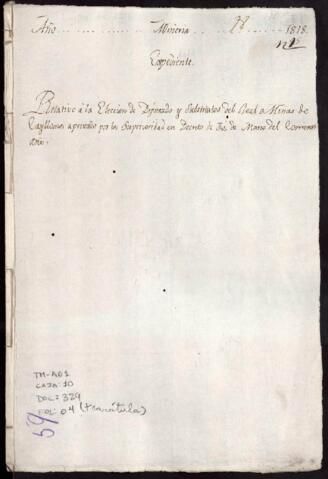 Año Mineria 1818.
Expediente.
Relativo à la Eleccion de Diputado y Substitutos del Real de Minas de
Caylloma aprovados por la Superioridad en Decreto de de Marzo del Corriente
año.
TM-AD1
CAJA: 10
DOC: 329
FOL: 04 (+carátula)
59